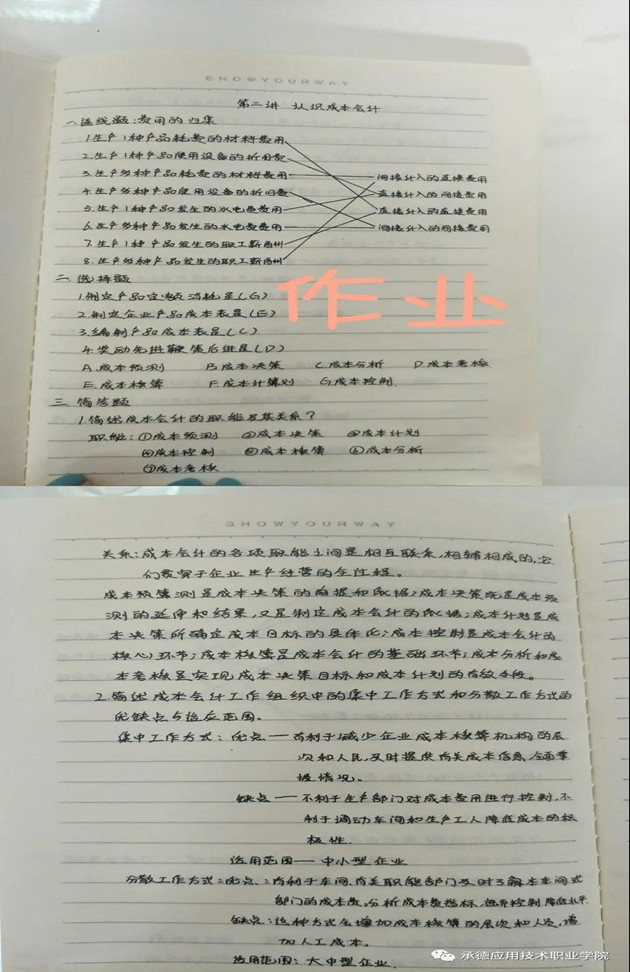 SHOWYOURWAY
第二讲 认识成本会计
一.连线题:费用的归集
1.生产1种产品耗费的材料费用
2.生产1种产品使用设备的折旧费
3.生产多种产品耗费的材料费用
4.生产多种产品使用设备的折旧费
5.生产1种产品发生的水电费费用
6.生产多种产品发生的水电费费用
7.生产1种产品发生的职工薪酬
8.生产多种产品发生的职工薪酬
间接计入的直接费用
直接计入的间接费用
直接计入的直接费用
间接计入的间接费用
二.选择题
1.制定产品定额消耗是(G)
2.制定企业产品成本表是(E)
3.编制产品成本表是(C)
4.奖励先进鞭策后进是(D)
A.成本预测 B.成本决策 C.成本分析 D.成本考核
E.成本核算 F.成本计划 G.成本控制
作业
三.简答题
1.简述成本会计的职能及其关系?
职能:①成本预测 ②成本决策 ③成本计划
④成本控制 ⑤成本核算 ⑥成本分析
⑦成本考核
SHOWYOURWAY
关系:成本会计的各项职能之间是相互联系,相辅相成的,它
们贯穿于企业生产经营的全过程。
成本预测是成本决策的前提和依据;成本决策既是成本预
测的延伸和结果,又是制定成本会计的依据;成本计划是成
本决策所确定成本目标的具体化;成本控制是成本会计的
核心环节;成本核算是成本会计的基础环节;成本分析和成
本考核是实现成本决策目标和成本计划的有效手段。
2.简述成本会计工作组织中的集中工作方式和分散工作方式的
优缺点与适应范围。
集中工作方式:优点——有利于减少企业成本核算机构的层
次和人员,及时提供有关成本信息,全面掌
握情况。
缺点——不利于生产部门对成本费用进行控制,不
利于调动车间和生产工人降低成本的积
极性.
适用范围——中小型企业
分散工作方式:优点:有利于车间,有关职能部门及时了解本车间或
部门的成本,分析成本指标,控制降低水平
缺点:这种方式会增加成本核算的层次和人员,增
加人工成本。
适用范围:大中型企业
承德应用技术职业学院